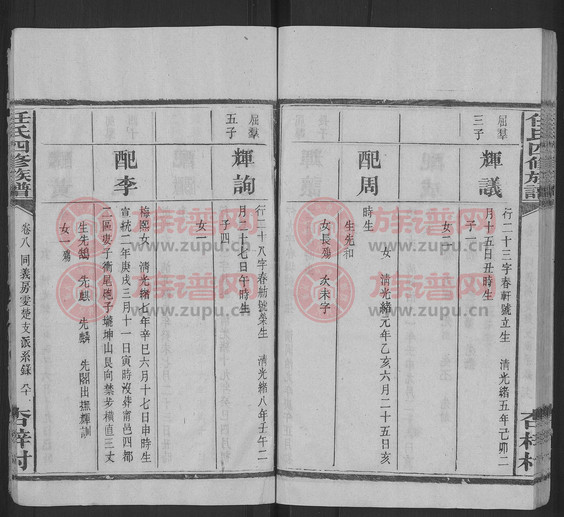 任氏四修族譜
杏梓村
屈羣
三子
輝議
行二十三字春軒號立生　清光緒五年己卯二
月十五日丑時生
子一
女二
配周
女　清光緒元年乙亥六月二十五日亥
時生
生先和
女長殤　次未字
屈羣
五子
輝詢
行二十八字春舫號榮生　清光緒八年壬午二
月二十七日午時生
子四
女一
配李
梅閣女　清光緒七年辛巳六月十七日申時生
宣統二年庚戌三月十一日寅時沒葬甯邑四都
二區東子衝尾砲子壠坤山艮向禁步橫直三丈
生先鵠　先麒　先麟　先閣出撫輝訓
女一殤
任氏四修族譜
卷八　同義房雲楚支派系錄
杏梓村
族谱网
www.zupu.cn
族谱网
www.zupu.cn
族谱网
www.zupu.cn
族谱网
www.zupu.cn